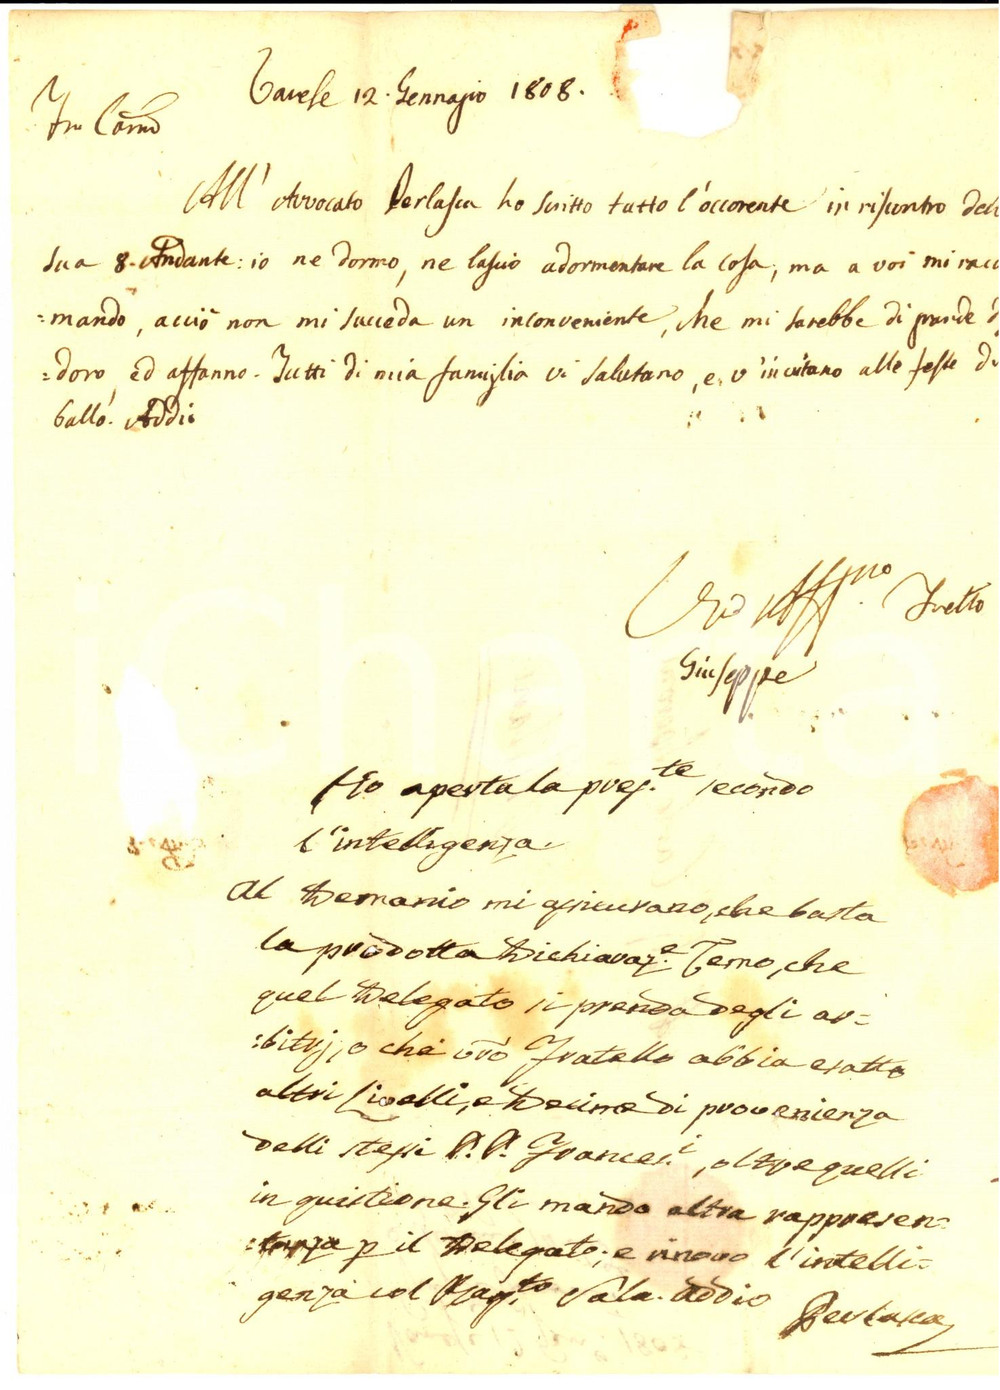 Varese 12. Gennajo 1808.
Fr. Carmo
All' Avvocato Perlasca ho scritto tutto l'occorente in riscontro del
sua 8. Andante: io ne dormo, ne lascio adormentare la cosa, ma a voi mi racc
=mando, acciò non mi succeda un inconveniente, che mi sarebbe di grande d
=doro, ed affanno. Tutti di mia famiglia vi salutano, e v'invitano alle feste di
ballo. Addio
Affmo. Fratello
Giuseppe
Ho aperta la pres.te secondo
l'intelligenza.
Al Demanio mi assicurano, che basta
la prodotta Dichiaraz.e Temo, che
quel Delegato si prenda degli ar=
=bitrj, o che vro Fratello abbia esatto
altri Livelli, e Decime di provenienza
delli stessi P.P. Frances.i, oltre quelli
in quistione. Gli mando altra rappresen=
=tanza p il Delegato, e rinovo l'intelli=
genza col Rag.to Sala. Addio
Perlasca